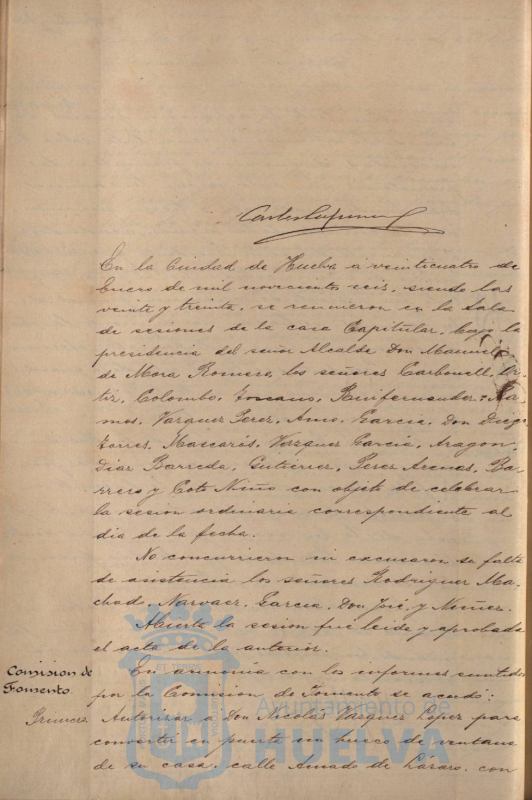 En la Ciudad de Huelva a veinticuatro de
Enero de mil novecientos seis, siendo las
veinte y treinta, se reunieron en la Sala
de sesiones de la casa Capitular, bajo la
presidencia del señor Alcalde Don Manuel
de Mora Romero, los señores Carbonell, Or-
tiz, Colombo, Toscano, Ruifernandez, Ra-
mos, Vazquez Perez, Amo, Garcia, Don Diego
Torres, Mascarós, Vazquez Garcia, Aragon,
Diaz Barreda, Gutierrez, Perez Arenas, Ba-
rrero y Coto Niño con objeto de celebrar
la sesion ordinaria correspondiente al
dia de la fecha.
No concurrieron ni excusaron su falta
de asistencia los señores Rodriguez Ma-
chado, Narvaez, Garcia, Don José, y Nuñez.
Abierta la sesion fué leida y aprobada
el acta de la anterior.
Comision de
Fomento.
En armonía con los informes emitidos
por la Comision de Fomento se acordó:
Primero. Autorizar a Don Nicolás Vazquez Lopez para
convertir en puerta un hueco de ventana
de su casa, calle Amado de Lázaro, con
Ayuntamiento de
HUELVA